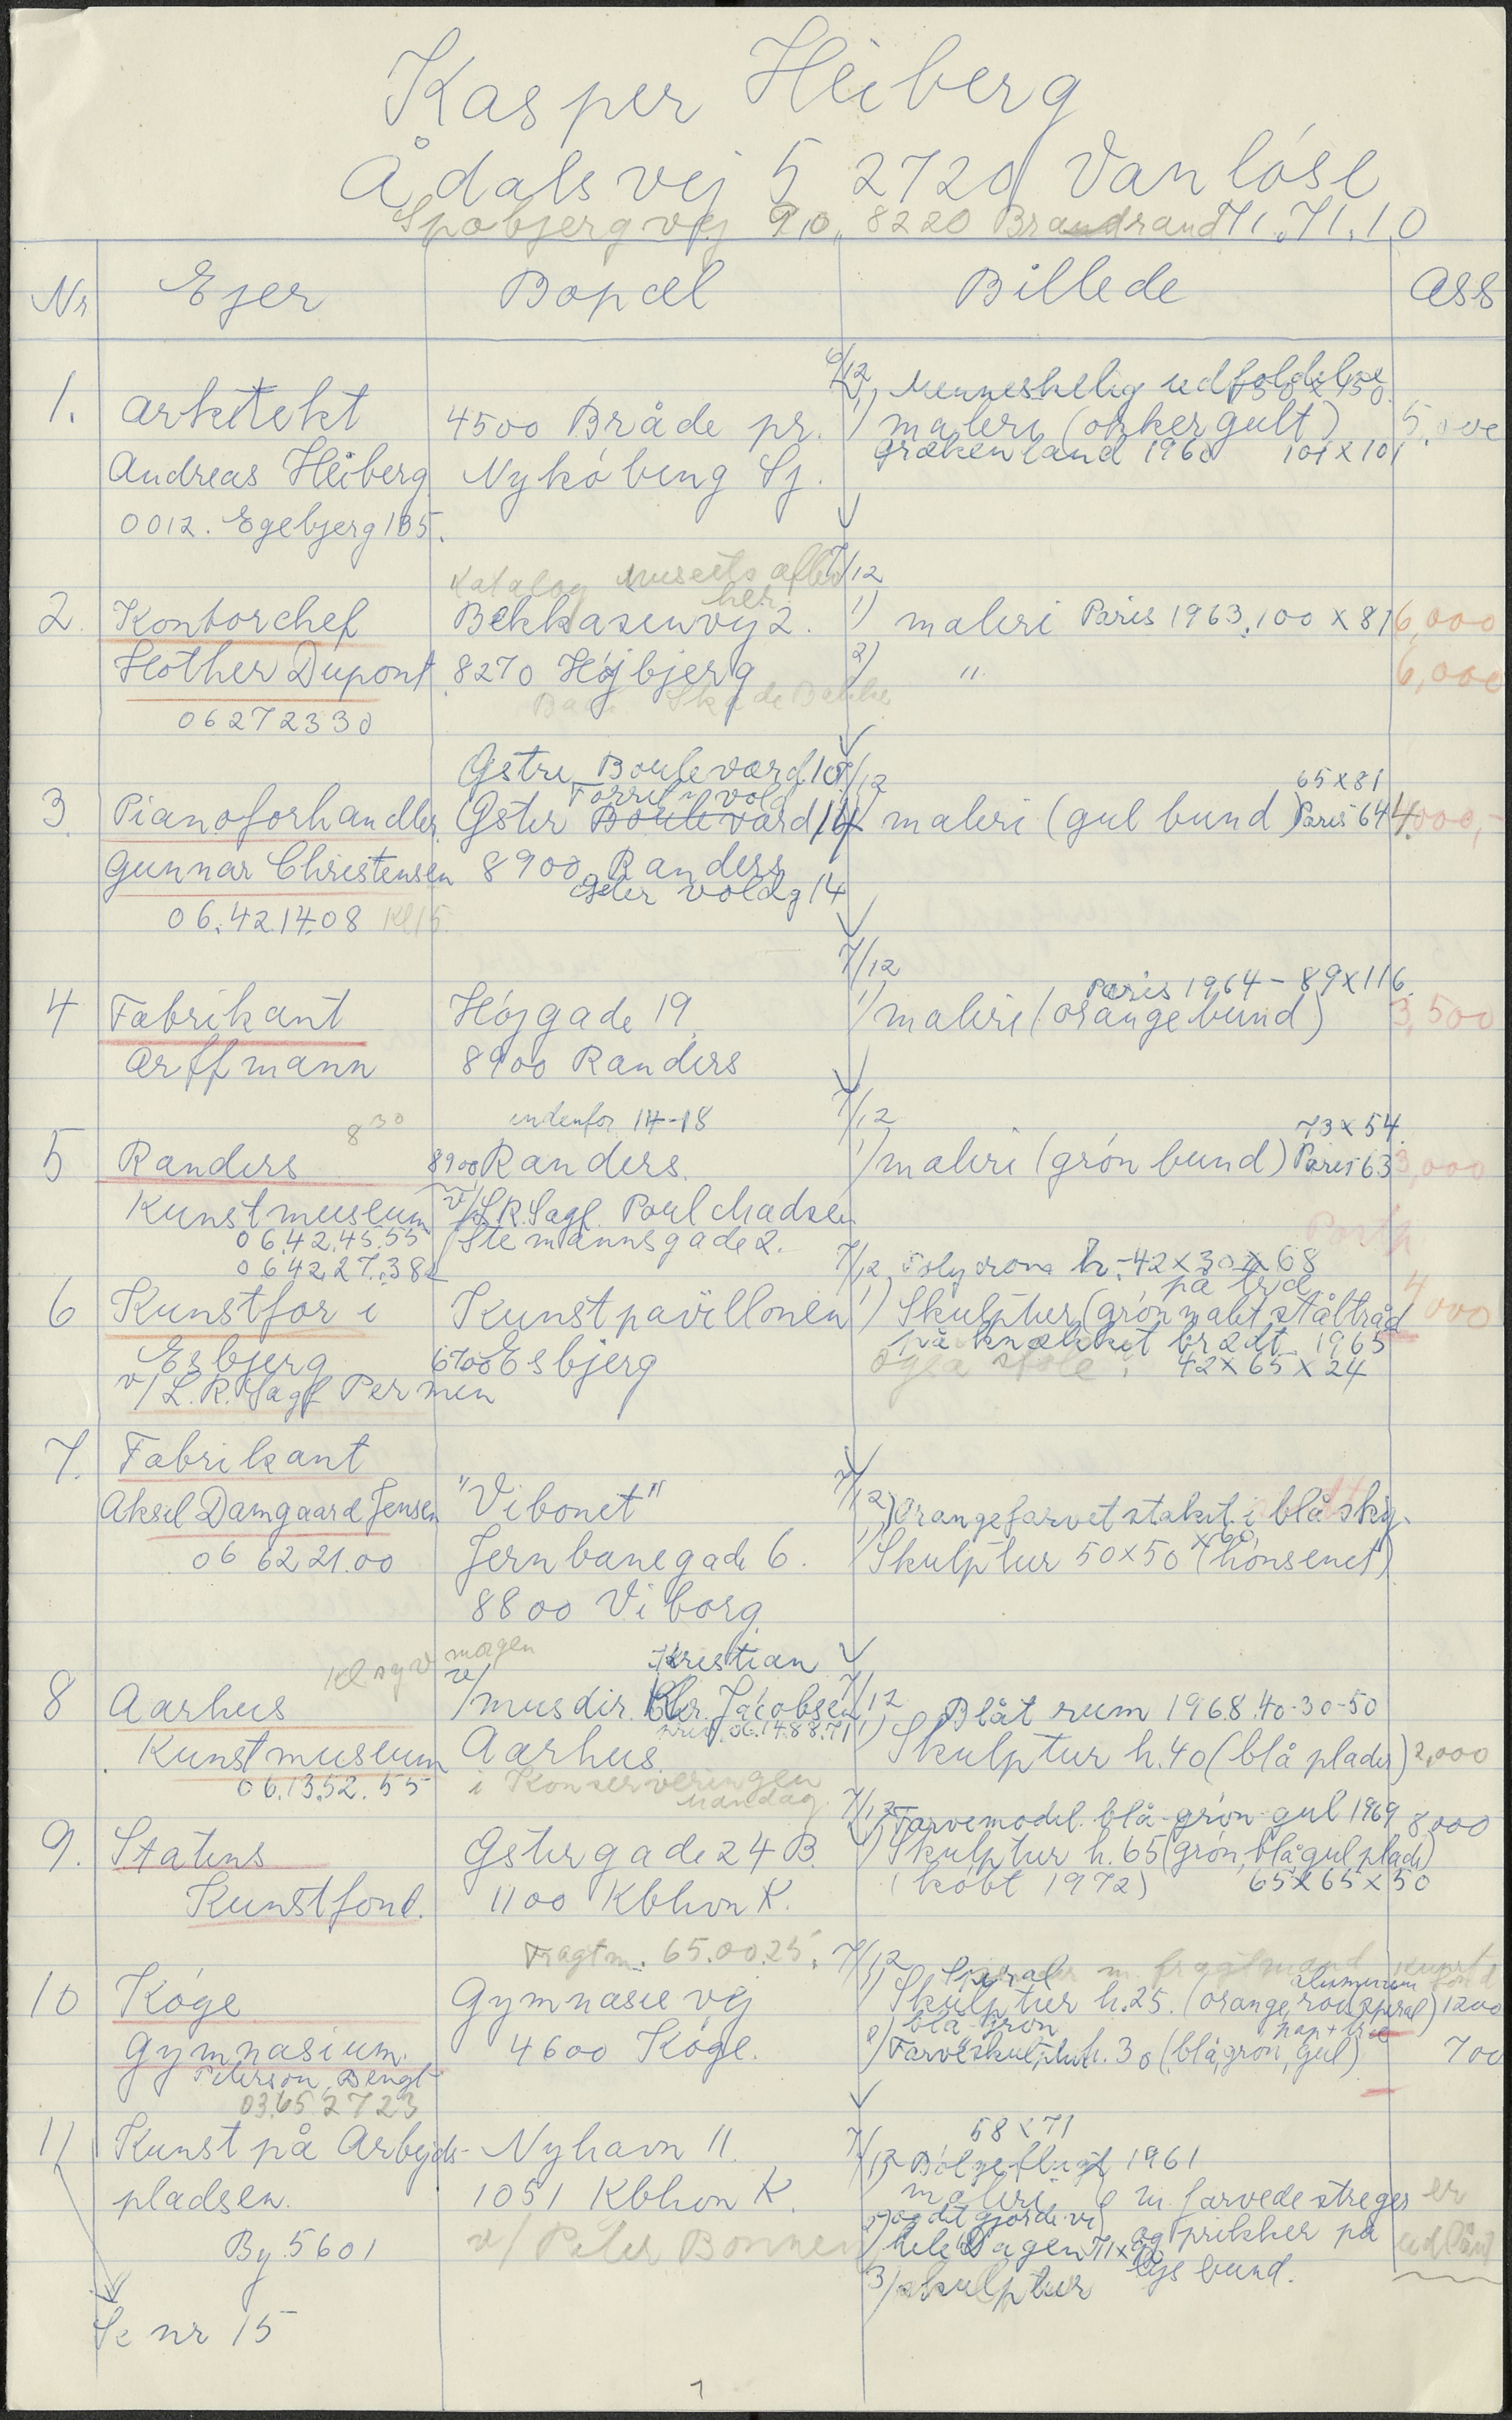 Kasper Heiberg
Ådalsvej 5 2720 Vanløse
Spobjergvej 90, 8220 Brandrand 71.71.10
Nr Ejer Bopæl Billede Ass
6/12 Menneskelig udfoldelse
1. Arkitekt 4500 Bråde pr. 1) maleri (okkergult) 5.000
Andreas Heiberg Nykøbing Sj. Grækenland 1960 101 x 101
0012. Egebjerg 135.
Katalog museets 7/12
her
2. Kontorchef Bekkasinvej 2. 1) maleri Paris 1963, 100 x 81 6,000
Hother Dupont 8270 Højbjerg 2) " 6,000
06272330
Østre Boulevard 10 7/12 65 x 81
3. Pianoforhandler Øster Boulevard 14 maleri (gul bund) Paris 64 4000,-
Gunnar Christensen 8900 Randers
Øster voldg 14
06.42.14.08 Kl 15
7/12 Paris 1964 - 89 x 116
4 Fabrikant Højgade 19 1) maleri (orange bund) 3,500
Arffmann 8900 Randers
8 30 indenfor 14-18 7/12 73 x 54
5 Randers 8900 Randers 1) maleri (grøn bund) Paris 63 3,000
Kunstmuseum v/L.R.Sagf. Poul Madsen
06.42.45.55 Stemannsgade 2.
06 42 27.38
7/12 h. 42 x 30 x 68
på træ
6 Kunstfor i Kunstpavillonen 1) Skulptur (grønmalet ståltråd 4000
på knækket brædt 1965
Esbjerg 6700 Esbjerg 42 x 65 x 24
v/L.R.Sagf Permin
7. Fabrikant
Aksel Damgaard Jensen "Vibonet" 7/12 2) Orangefarvet stakit i blå sky.
06 62 21.00 Jernbanegade 6. 1) Skulptur 50 x 50 x 60 (hønsenet)
8800 Viborg
morgen Kristian
8 Aarhus v/musdir. Kr. Jacobsen 7/12 Blåt rum 1968. 40-30-50
06.14.88.71
Kunstmuseum Aarhus 1) Skulptur h. 40 (blå plader) 2,000
06.13.52.55 i Konserveringen
mandag
7/12 Farvemodel blå-grøn-gul 1969 8,000
9. Statens Østergade 24 B 1) Skulptur h. 65 (grøn, blå, gul plade)
Kunstfond. 1100 Kbhvn K. (købt 1972) 65 x 65 x 50
Fragtm. 65.00.25. 7/12 Spiral m. fragtmand kunst fond
aluminium
10 Køge Gymnasievej 1) Skulptur h. 25. (orange, spiral) 1200
blå-grøn pap + træ
Gymnasium. 4600 Køge. 2) Farveskulptur h. 30 (blå, grøn, gul) 700
Peterson, Bengt
03.65 2723
58 x 71
11 Kunst på Arbejds- Nyhavn 11. 7/12 Bølgeflugt 1961
pladsen. 1051 Kbhvn K. maleri m. farvede streger er
2) og det gjorde vi
By. 5601 v/ Peter Bonnen hele dagen 71 x og prikker på udlånt
3) skulptur lys bund.
Se nr 15
1